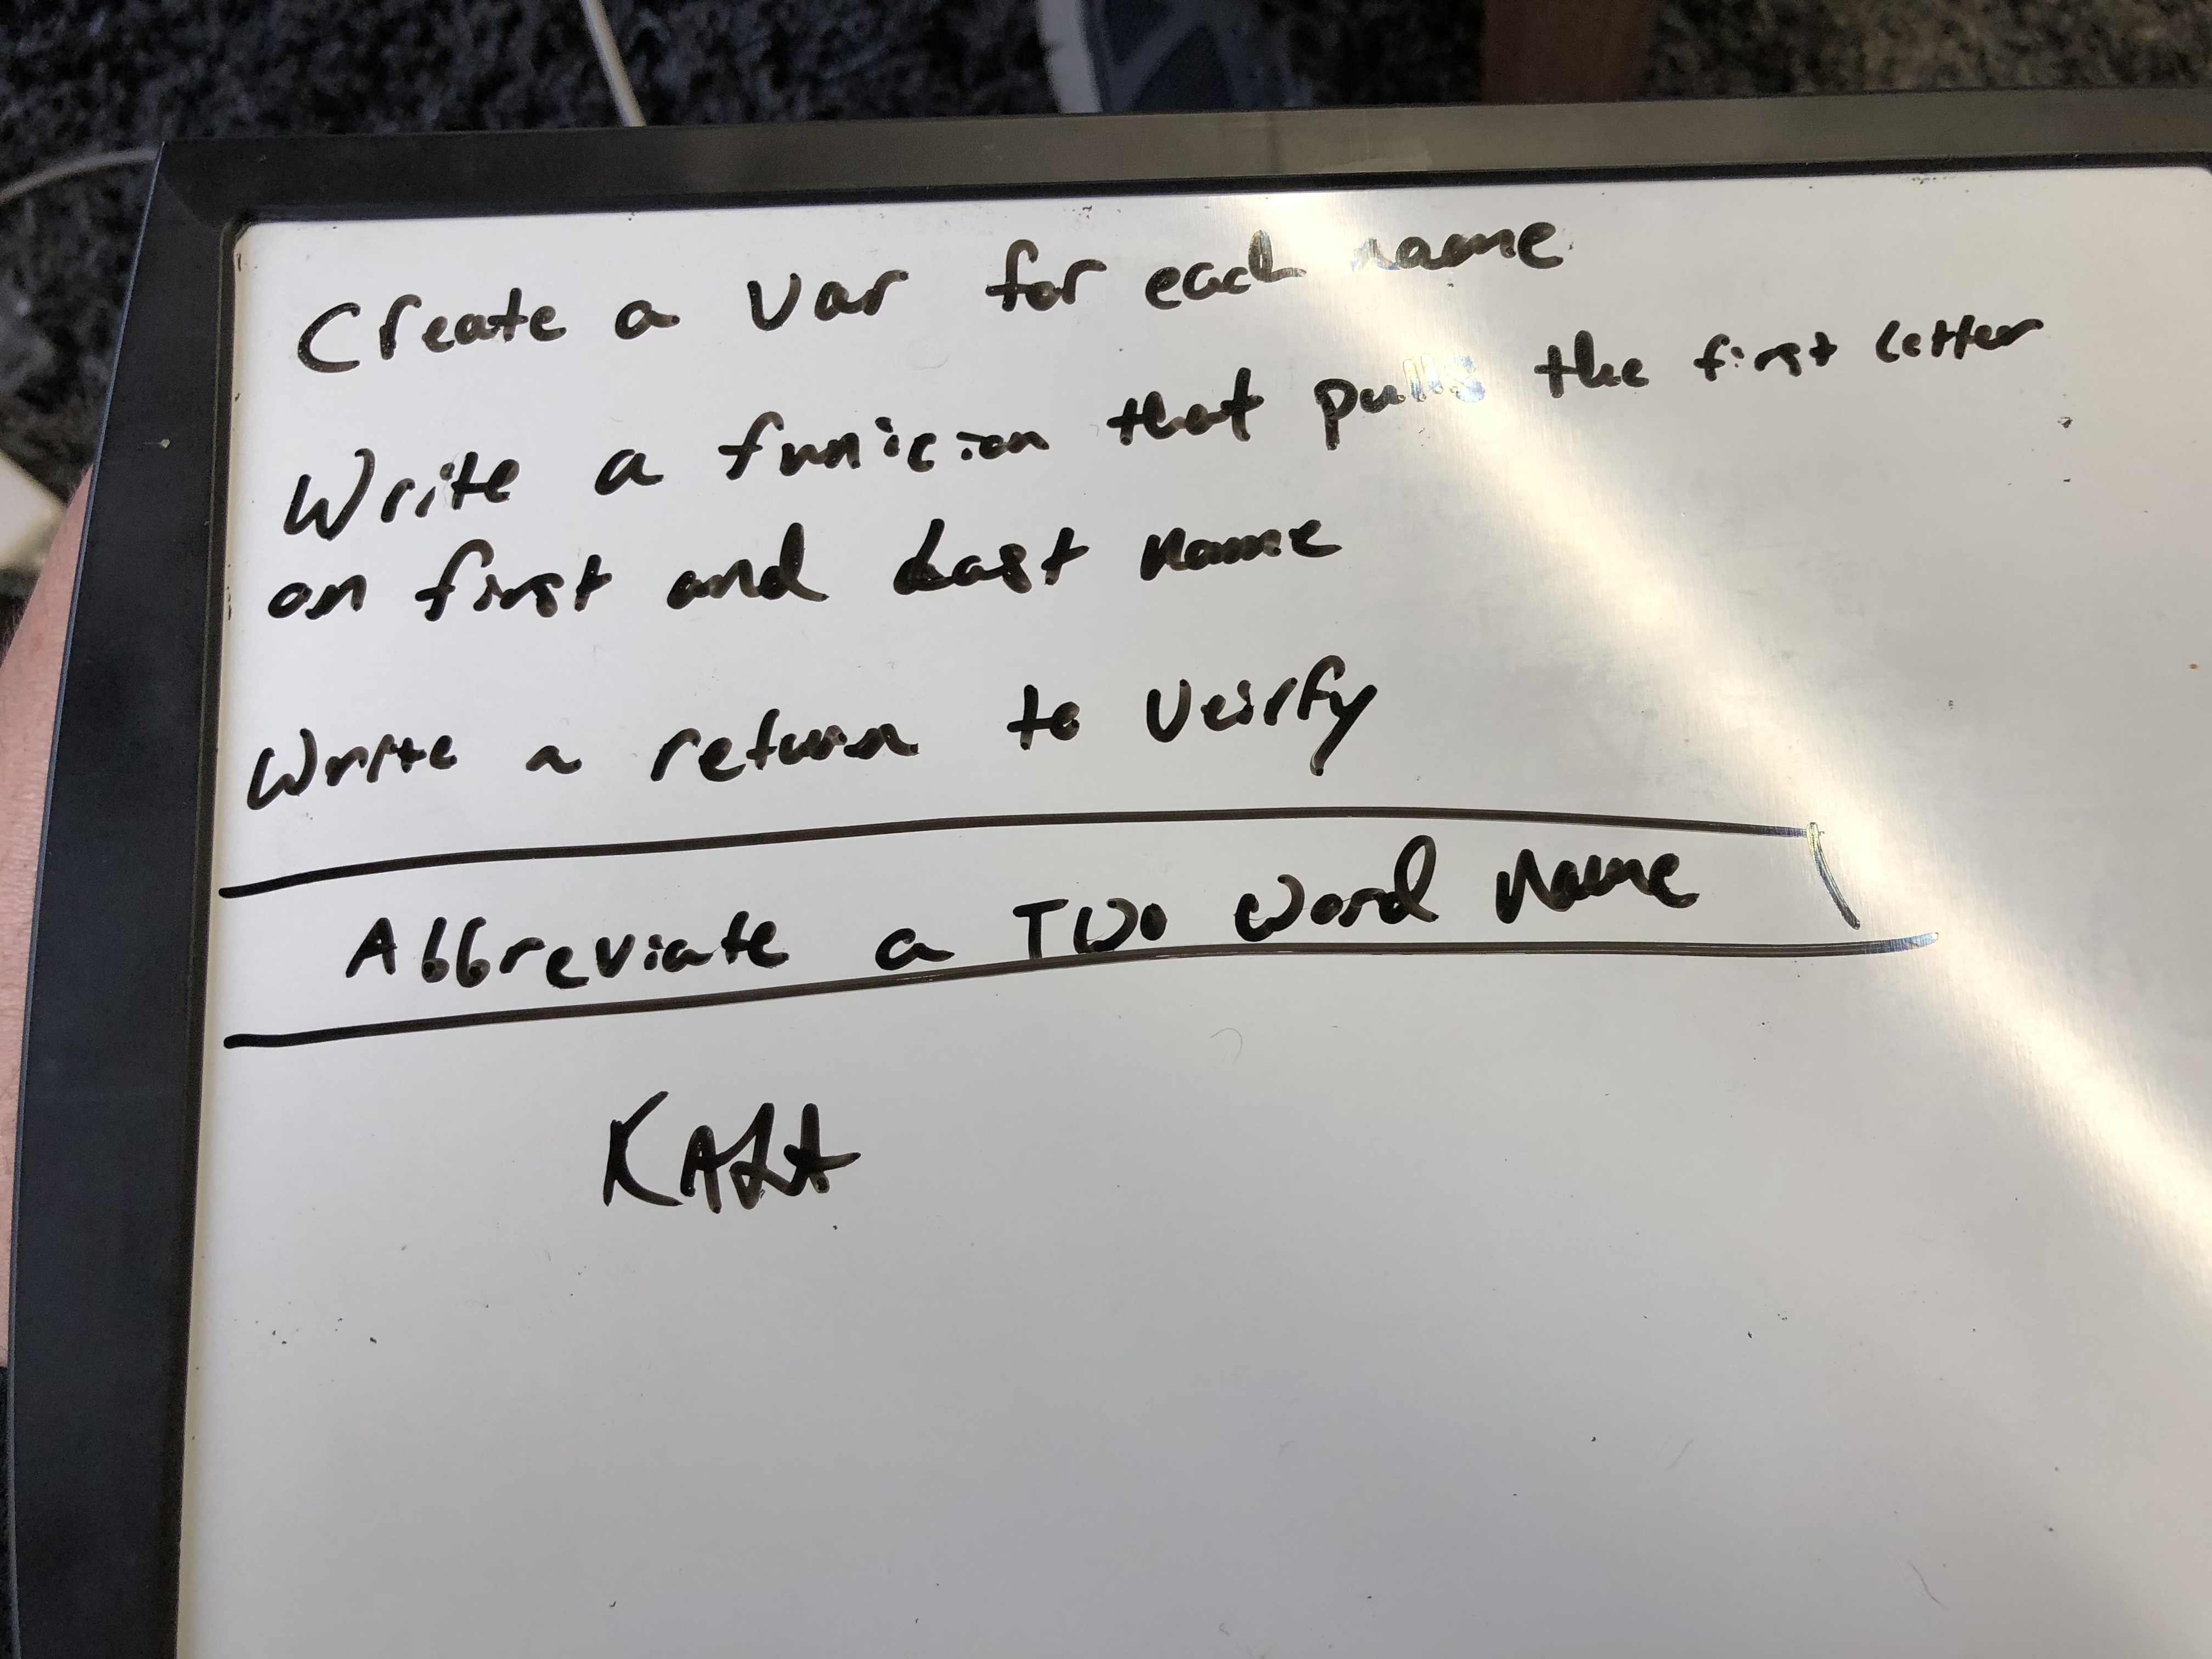 Create a Var for each name
Write a funicion that pulls the first letter
on first and Last Name
Write a return to Verify
Abbreviate a Two Word Name
KATA